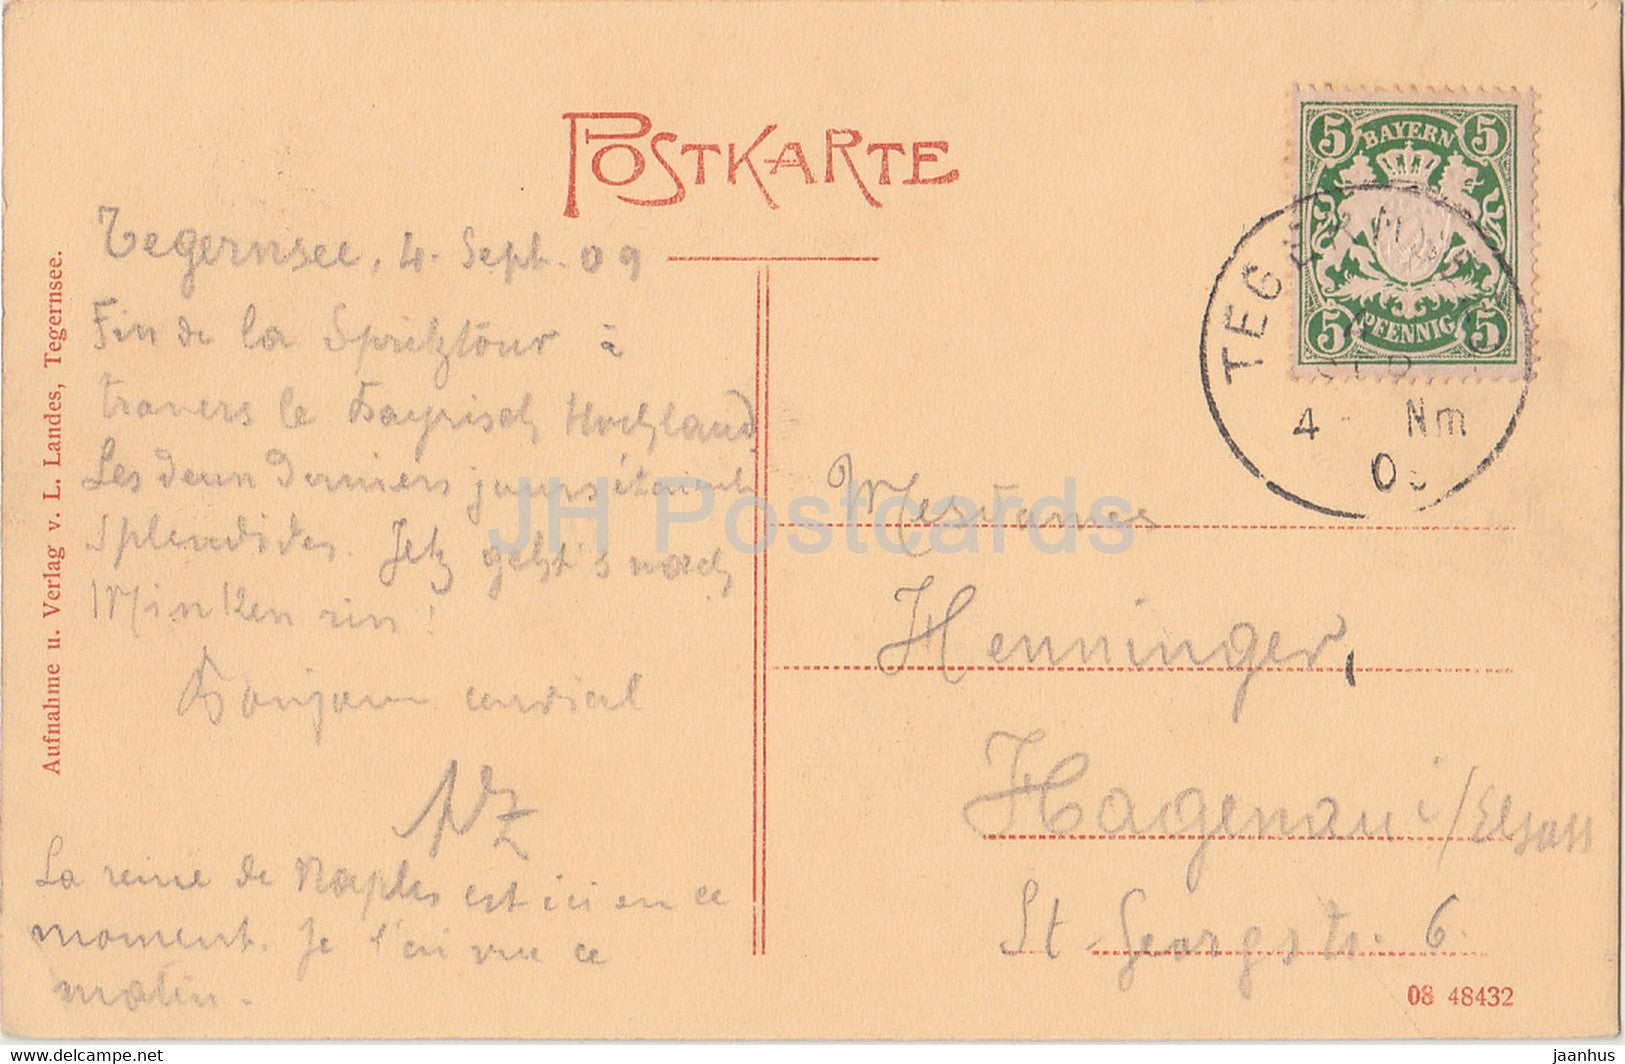 POSTKARTE
BAYERN
5 5
5 5
PFENNIG
TEGERNSEE
4 Nm
Tegernsee, 4. Sept. 09
Fin de la Spritztour à
travers le Bayrisch Hochland.
Les deux derniers jours étaient
splendides. Jetz geht's nach
Bonjour cordial
La reine de Naples est ici en ce
moment. Je l'ai vue ce
matin.
Henninger,
Hagenau i/Elsass
St. Georgstr. 6.
Aufnahme u. Verlag v. L. Landes, Tegernsee.
08 48432
JH Postcards
delcampe.net
jaanhus